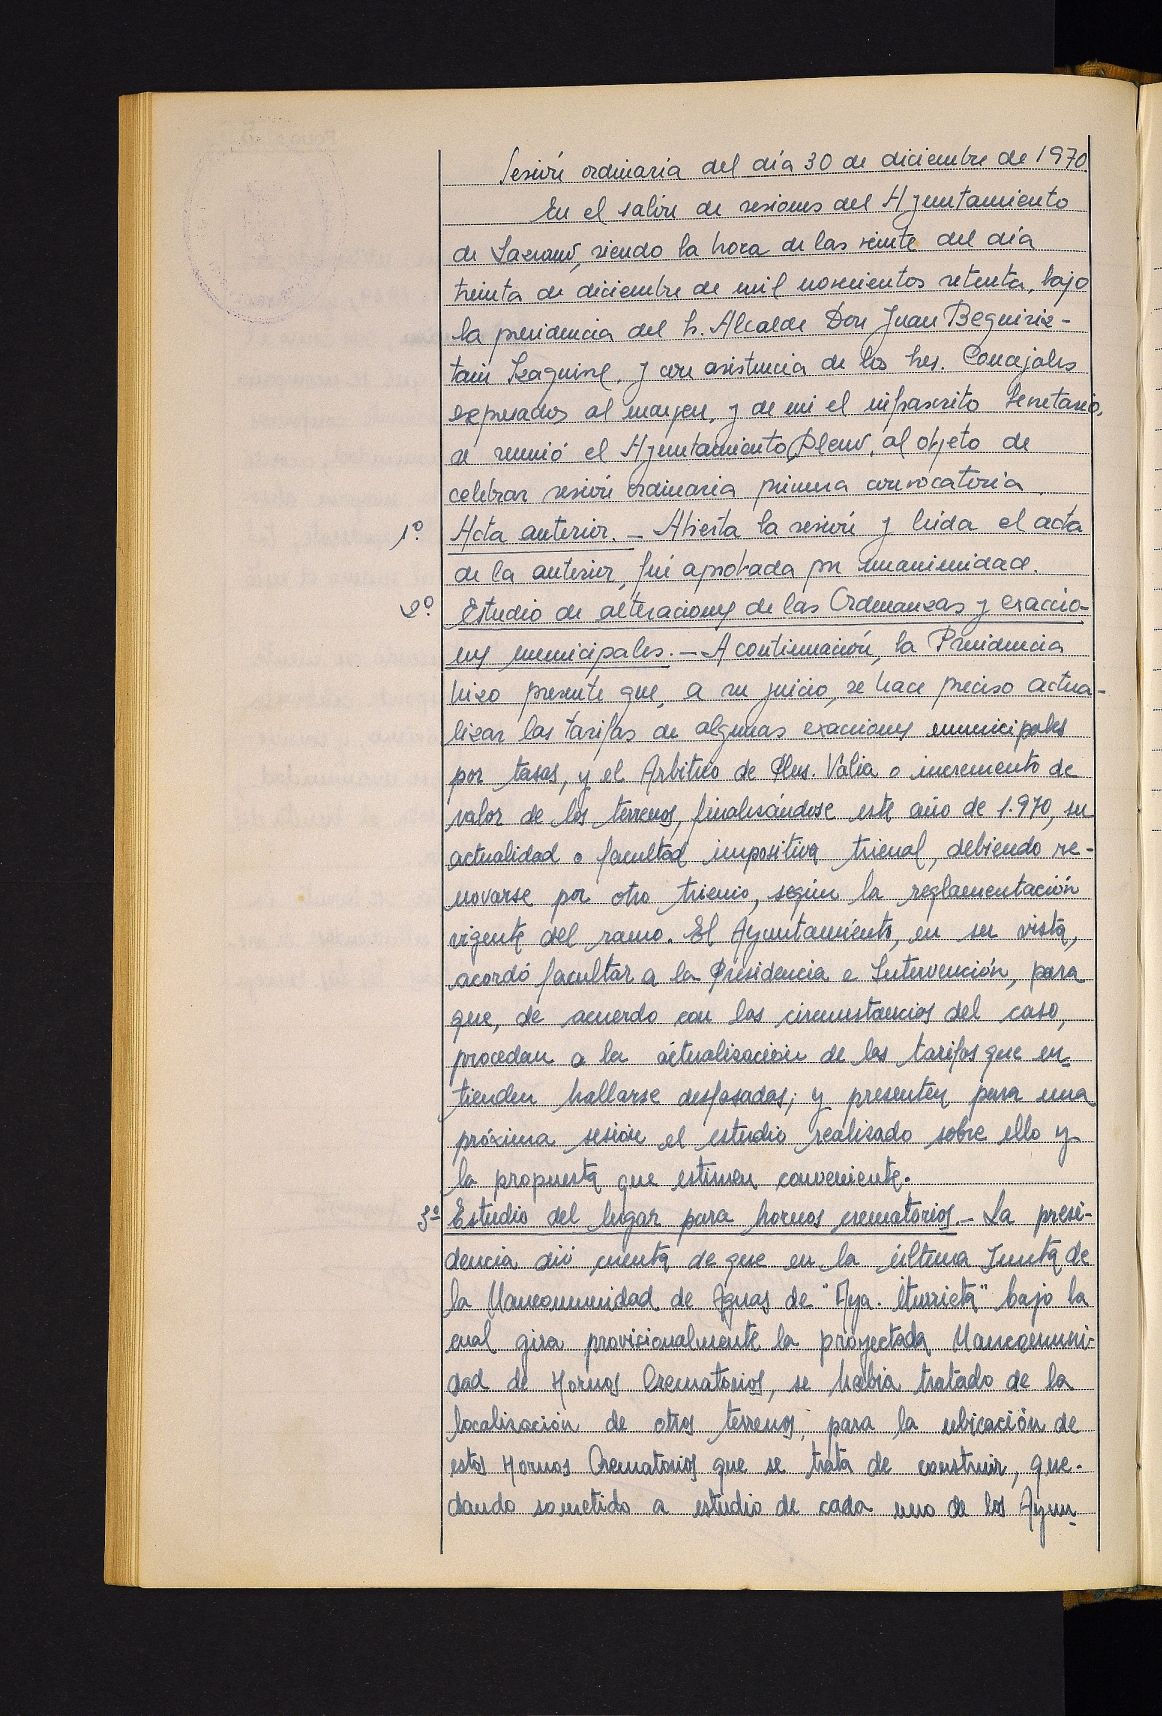 Sesión ordinaria del día 30 de diciembre de 1970.
En el salón de sesiones del Ayuntamiento
de Lazcano, siendo la hora de las veinte del día
treinta de diciembre de mil novecientos setenta, bajo
la presidencia del Sr. Alcalde Don Juan Beguiris-
tain Izaguirre, y con asistencia de los Sres. Concejales
expresados al margen, y de mi el infrascrito Secretario,
se reunió el Ayuntamiento Pleno, al objeto de
celebrar sesión ordinaria primera convocatoria.
1º Acta anterior. - Abierta la sesión y leída el acta
de la anterior, fué aprobada por unanimidad.
2º Estudio de alteraciones de las Ordenanzas y exaccio-
nes municipales. - A continuación, la Presidencia
hizo presente que, a su juicio, se hace preciso actua-
lizar las tarifas de algunas exacciones municipales
por tasas, y el Arbitrio de Plus. Valia o incremento de
valor de los terrenos, finalizándose este año de 1.970, su
actualidad o facultad impositiva trienal, debiendo re-
novarse por otro trienio, según la reglamentación
vigente del ramo. El Ayuntamiento, en su vista,
acordó facultar a la Presidencia e Intervención, para
que, de acuerdo con las circunstancias del caso,
procedan a la actualización de las tarifas que en-
tienden hallarse desfasadas; y presenten para una
próxima sesión el estudio realizado sobre ello y
la propuesta que estimen conveniente.
3º Estudio del lugar para hornos crematorios. - La presi-
dencia dió cuenta de que en la última Junta de
la Mancomunidad de Aguas de "Aya. Iturrieta" bajo la
cual gira provicionalmente la proyectada Mancomuni-
dad de Hornos Crematorios, se había tratado de la
localización de otros terrenos, para la ubicación de
estos Hornos Crematorios que se trata de construir, que-
dando sometido a estudio de cada uno de los Ayun-